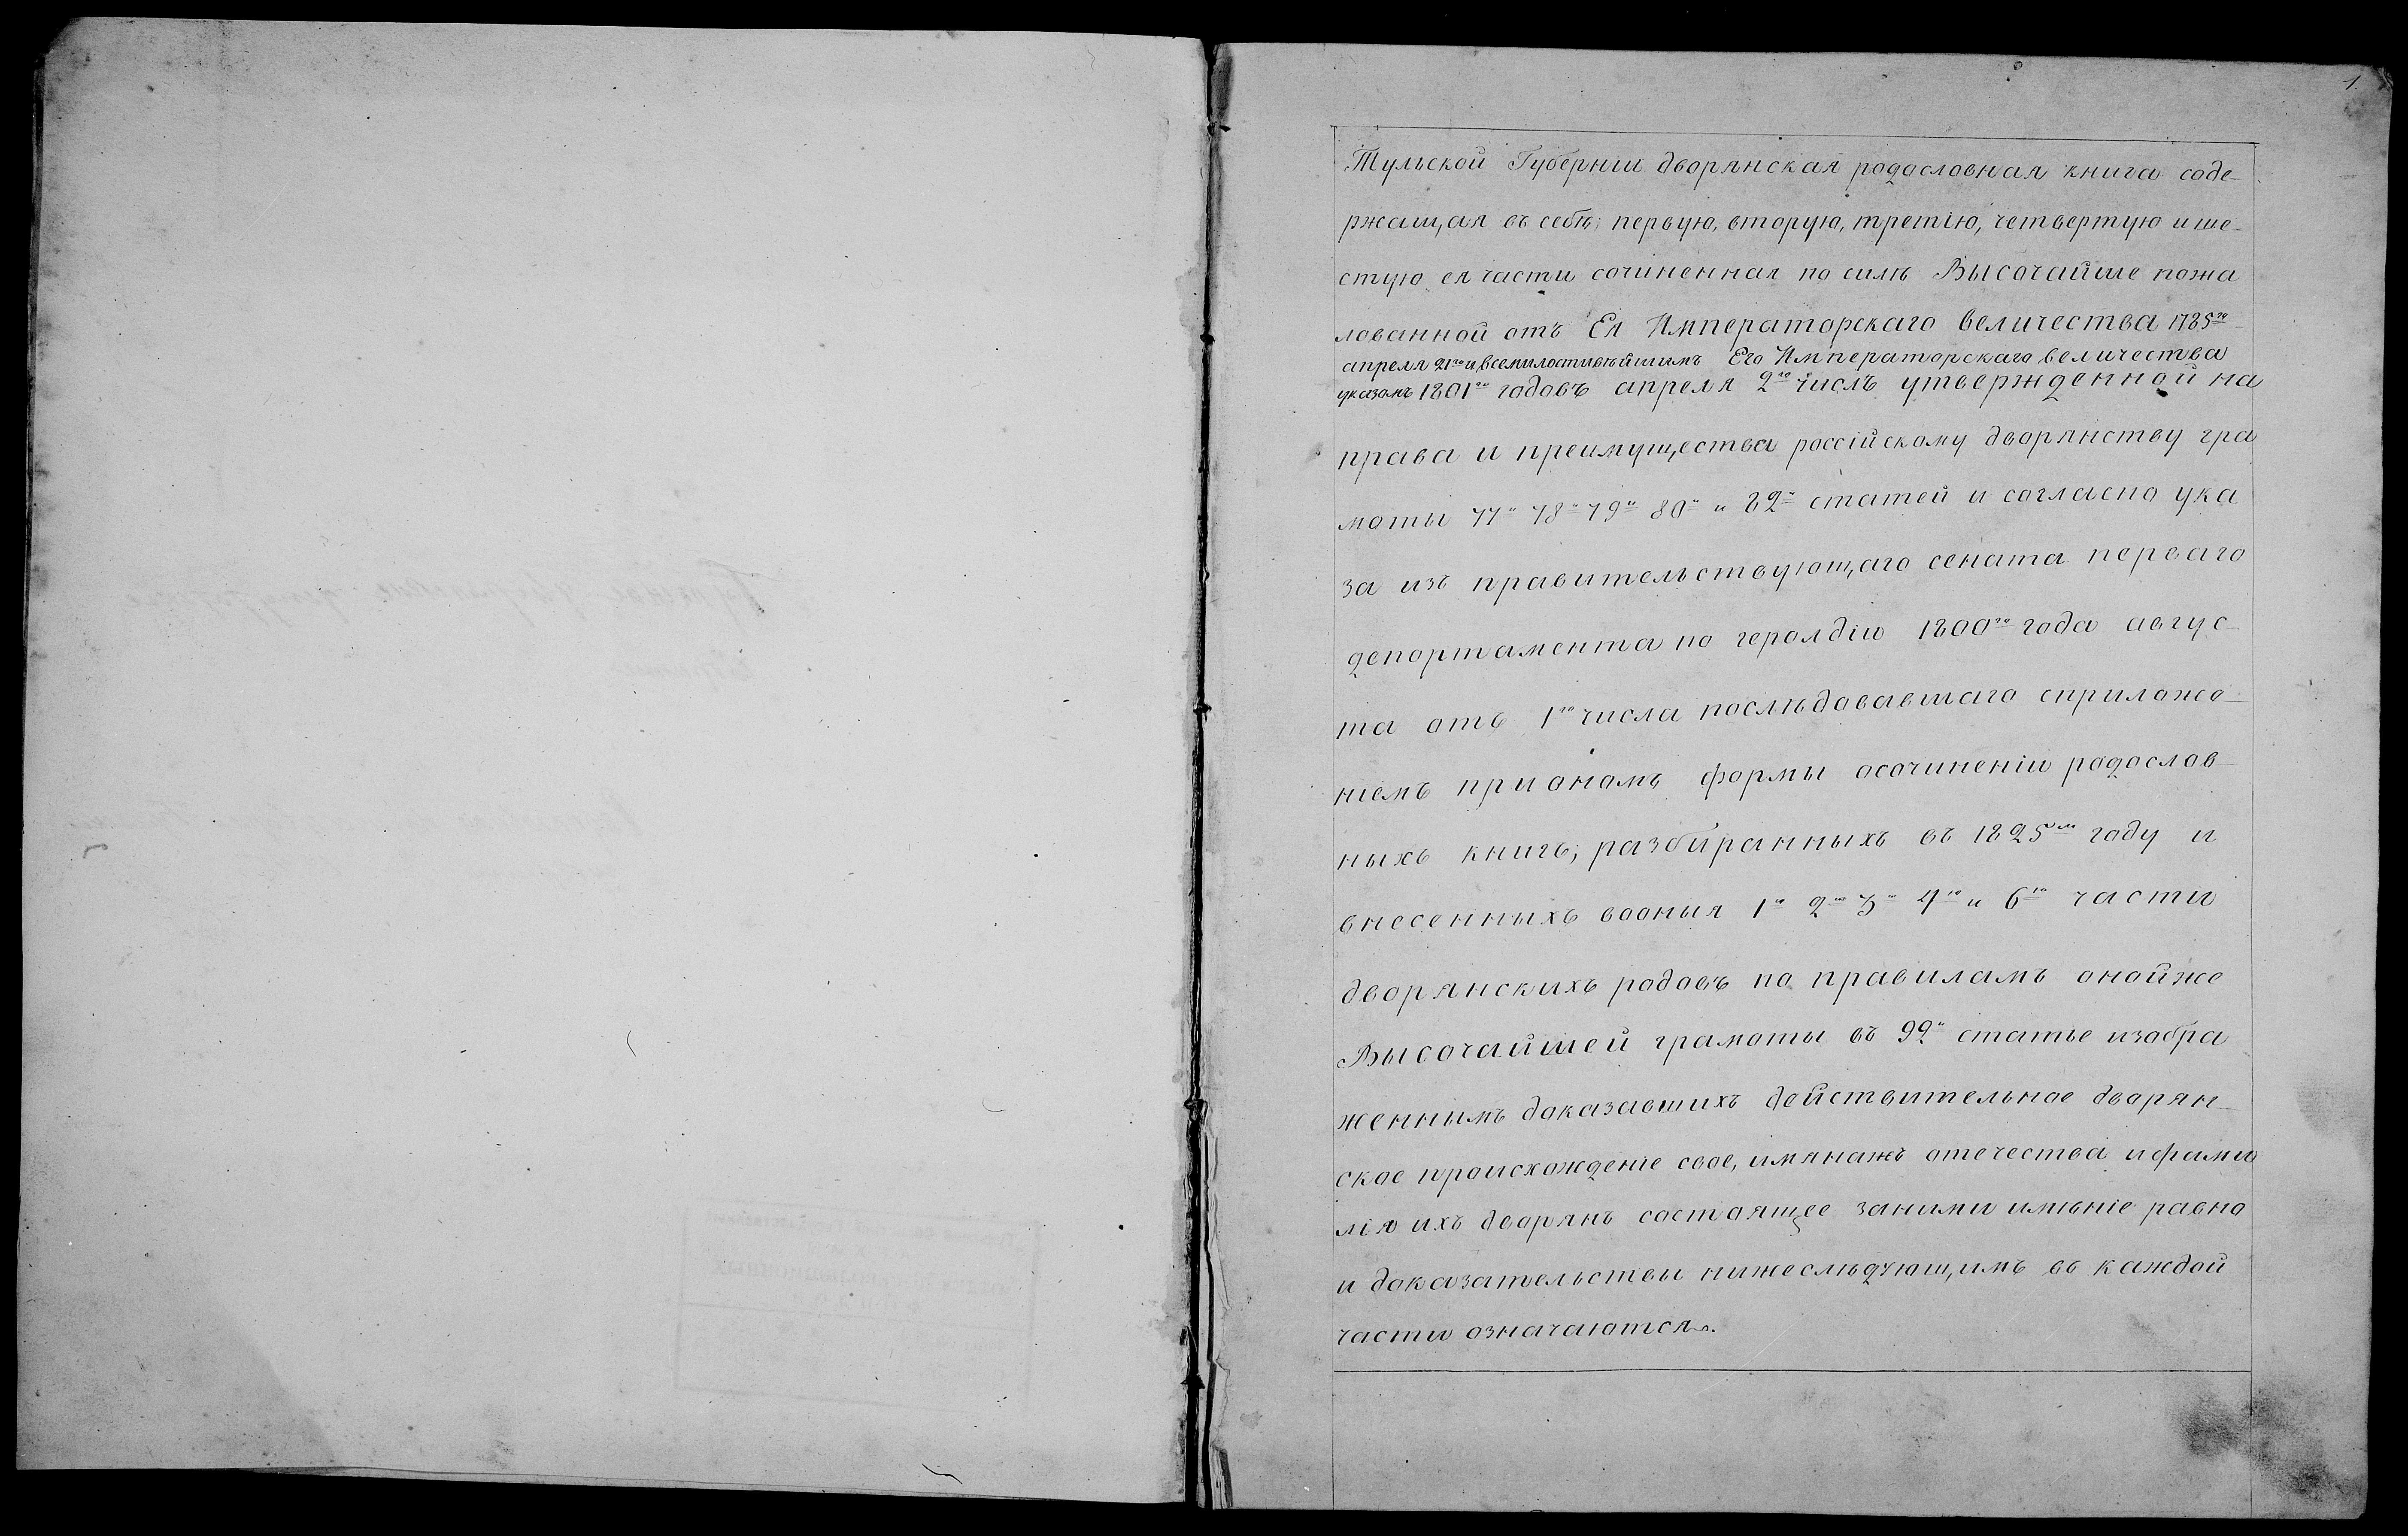 1.
Тульской Губерніи дворянская родословная книга соде-
ржащая въ себѣ: первую, вторую, третію, четвертую и ше-
стую ея части сочиненная по силѣ Высочайше пожа
лованной отъ Ея Императорскаго величества 1785го
апреля 21го и всемилостивѣйшимъ Его Императорскаго величества
указомъ 1801го годовъ апреля 2го числъ утвержденной на
права и преимущества россійскому дворянству гра
моты 77й 78й 79й 80й и 82й статей и согласно ука
за изъ правительствующаго сената перваго
департамента по геролдіи 1800го года авгус-
та отъ 1го числа послѣдовавшаго сприложе-
ніемъ прионамъ формы осочиненіи родослов-
ныхъ книгъ, разбиранныхъ въ 1825ом году и
внесенныхъ вооныя 1ю 2ю 3ю 4ю и 6ю части
дворянскихъ родовъ по правиламъ онойже
Высочайшей грамоты въ 92й статье изобра
женнымъ доказавшихъ действительное дворян-
ское происхожденіе свое, имянажъ отечества ифами
лія ихъ дворянъ состоящее заними имѣніе равно
и доказательствы нижеслѣдующимъ въ каждой
части означаются.